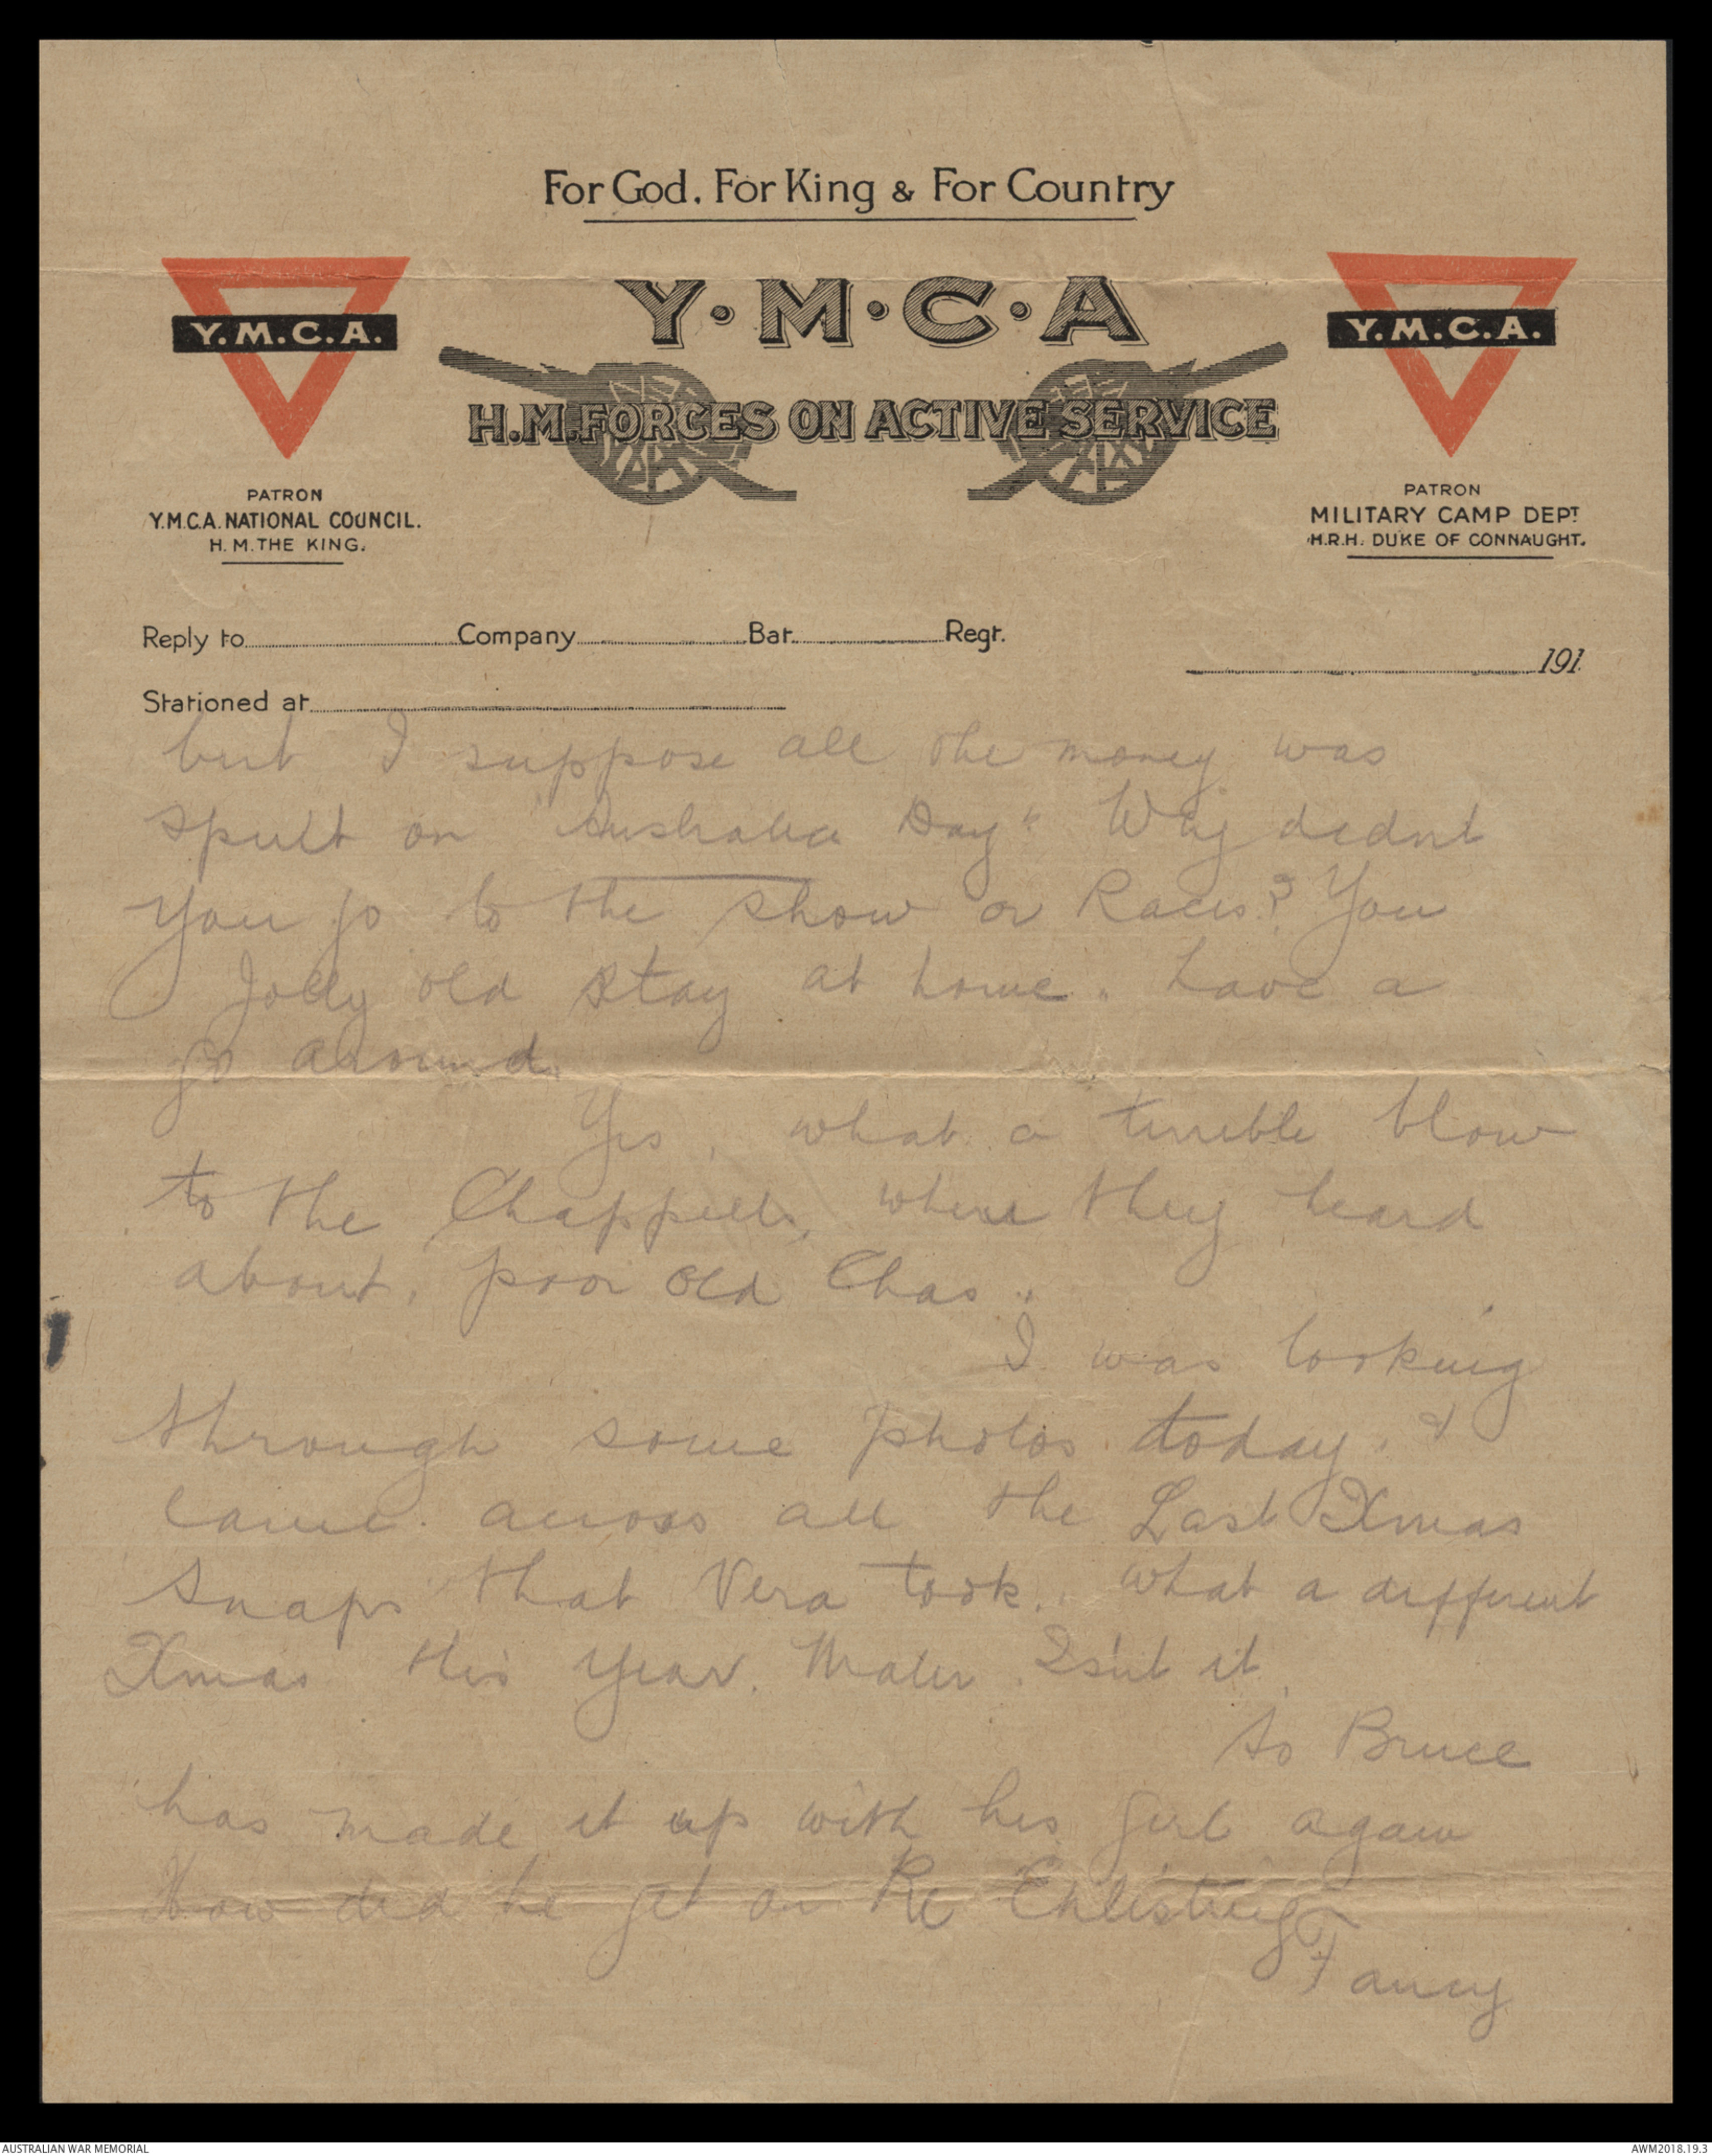 For God, For King & For Country
Y.M.C.A.
Y·M·C·A
Y.M.C.A.
H.M. FORCES ON ACTIVE SERVICE
PATRON
Y.M.C.A. NATIONAL COUNCIL.
H.M. THE KING.
PATRON
MILITARY CAMP DEPT
H.R.H. DUKE OF CONNAUGHT.
Reply to Company Bat. Regt.
191
Stationed at
but I suppose all the money was
spult on "Australia Day" Why didnt
you go to the show or Races? You
Jolly old stay at home. have a
go around.
Yes, what a terrible blow
to the Chappells, when they heard
about, poor old Chas.
I was looking
through some photos today, &
came across all the Last Xmas
snaps that Vera took. What a different
Xmas this year. Mater. Isn't it
So Bruce
has made it up with his girl again
How did he get on Re Enlisting
Fancy
AUSTRALIAN WAR MEMORIAL
AWM2018.19.3